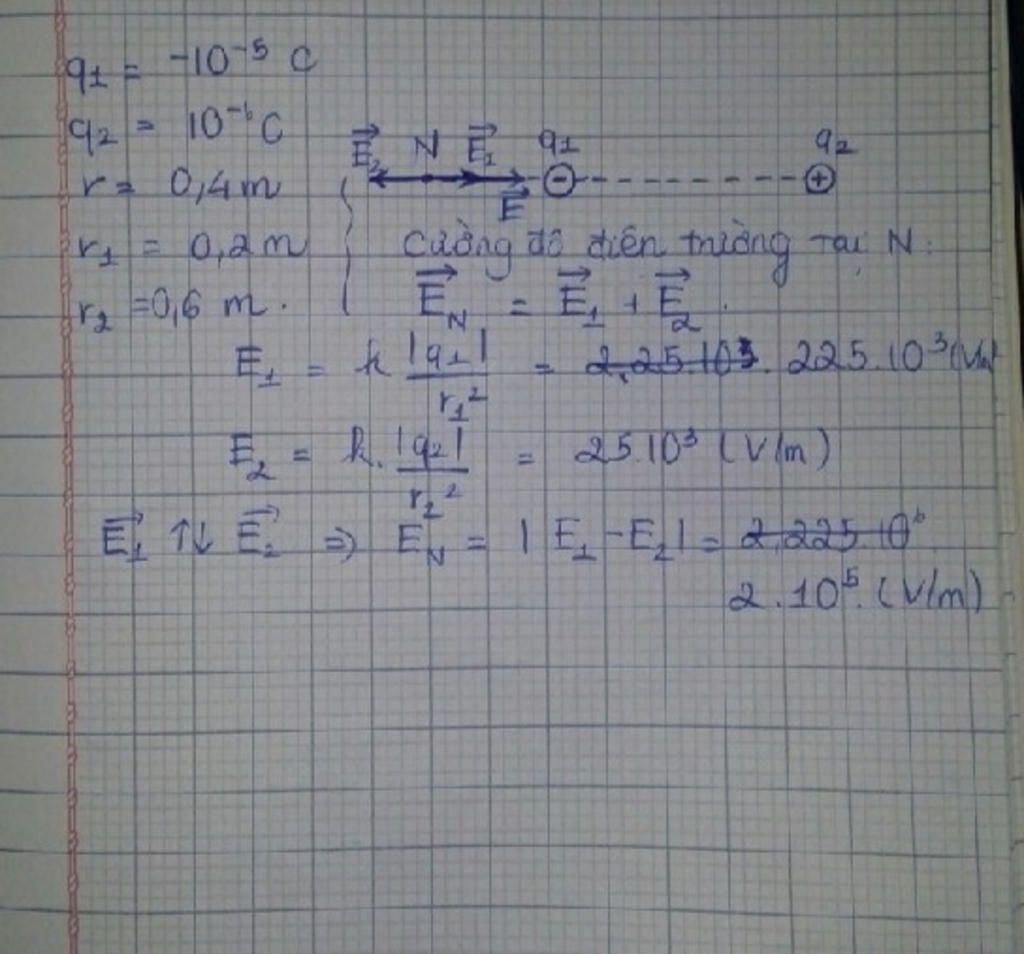 q1 = -10⁻⁵ C
q2 = 10⁻⁶ C
E⃗2 N E⃗1 q1 q2
r = 0,4 m
- +
E⃗
r1 = 0,2 m
Cường độ điện trường tại N.
r2 = 0,6 m.
E⃗N = E⃗1 + E⃗2.
E1 = k |q1| / r1² = 2,25.10³. 225.10³ (V/m
E2 = k. |q2| / r2² = 25.10³ (V/m)
E⃗1 ↑↓ E⃗2 ⇒ EN = | E1 - E2 | = 2,225.10⁶
2.10⁵. (V/m)